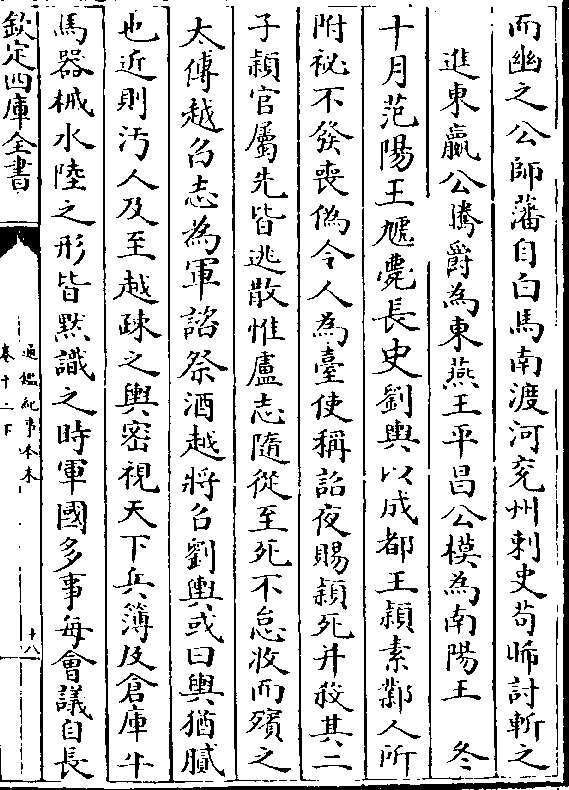 而幽之公師藩自白馬南渡河兖州刺史苟晞討斬之
進東嬴公騰爵為東燕王平昌公模為南陽王　冬
十月范陽王虓薨長史劉輿以成都王穎素鄴人所
附祕不發喪偽令人為臺使稱詔夜賜穎死并殺其二
子穎官屬先皆逃散惟盧志隨從至死不怠收而殯之
太傅越召志為軍諮祭酒越將召劉輿或曰輿猶膩
也近則汚人及至越疎之輿密視天下兵簿及倉庫牛
馬器械水陸之形皆黙識之時軍國多事每會議自長
欽定四庫全書
通鑑紀事本末
卷十二下
十八